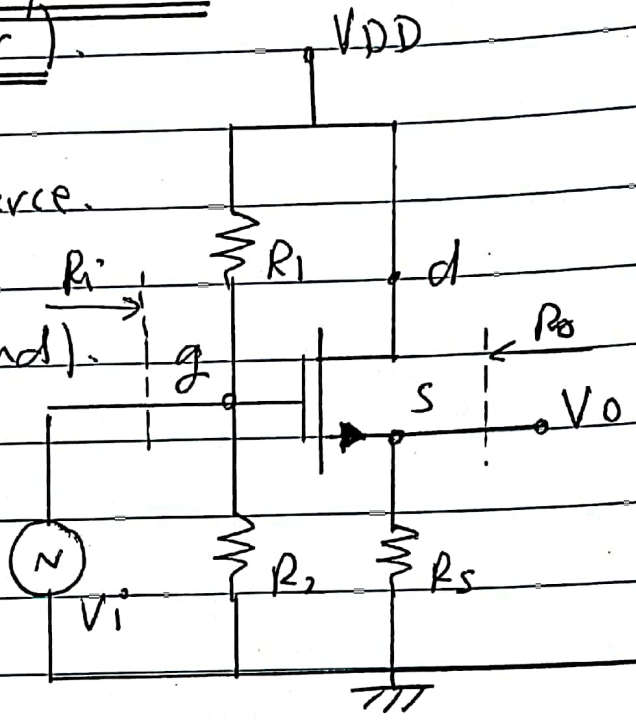 VDD
R1
d
Ri
Ro
g
S
Vo
N
R2
Rs
Vi